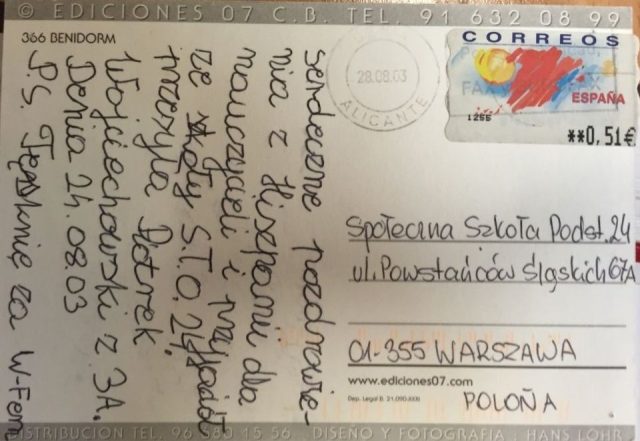 © EDICIONES 07 C.B. TEL. 91 632 08 99
366 BENIDORM
serdeczne pozdrowie-
nia z Hiszpanii dla
nauczycieli i
ze szkoły S.T.O. 24
przesyła Piotrek
Wojciechowski z 3A.
Denia 24.08.03
P.S. Tęsknię za W-Fem
28.08.03
ALICANTE
CORREOS
ESPAÑA
1255
**0,51€
Społeczna Szkoła Podst. 24
ul. Powstańców Śląskich 67A
01-355 WARSZAWA
www.ediciones07.com
POLOÑA
DISTRIBUCION TEL. 96 580 15 56. DISEÑO Y FOTOGRAFIA - HANS LOHR